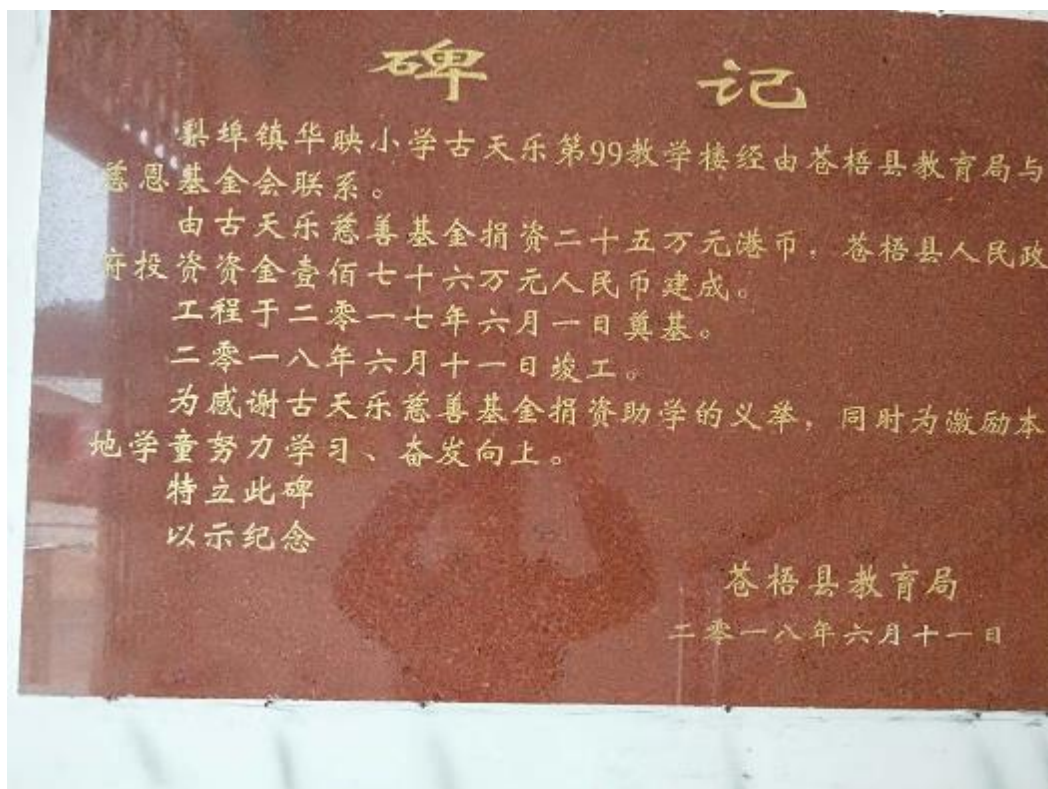 碑 记
梨埠镇华映小学古天乐第99教学楼经由苍梧县教育局与
慈恩基金会联系。
由古天乐慈善基金捐资二十五万元港币，苍梧县人民政
府投资资金壹佰七十六万元人民币建成。
工程于二零一七年六月一日奠基。
二零一八年六月十一日竣工。
为感谢古天乐慈善基金捐资助学的义举，同时为激励本
地学童努力学习、奋发向上。
特立此碑
以示纪念
苍梧县教育局
二零一八年六月十一日